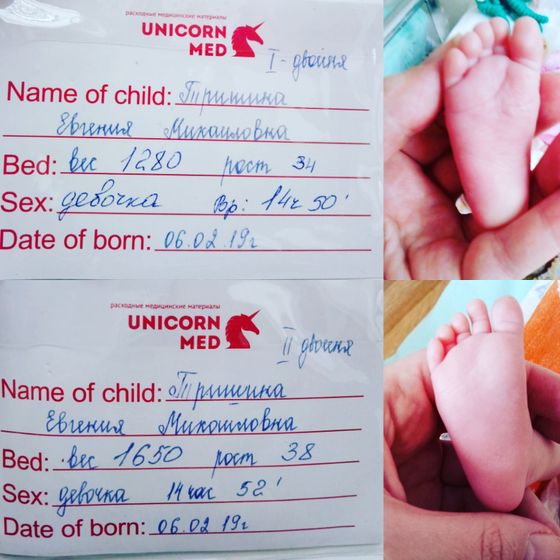 расходные медицинские материалы
UNICORN
MED
I - двойня
Name of child: Тришина
Евгения Михайловна
Bed: вес 1280 рост 34
Sex: девочка Вр: 14ч 50'
Date of born: 06.02.19г
расходные медицинские материалы
UNICORN
MED
II двойня
Name of child: Тришина
Евгения Михайловна
Bed: вес 1650 рост 38
Sex: девочка 14 час 52'
Date of born: 06.02.19г